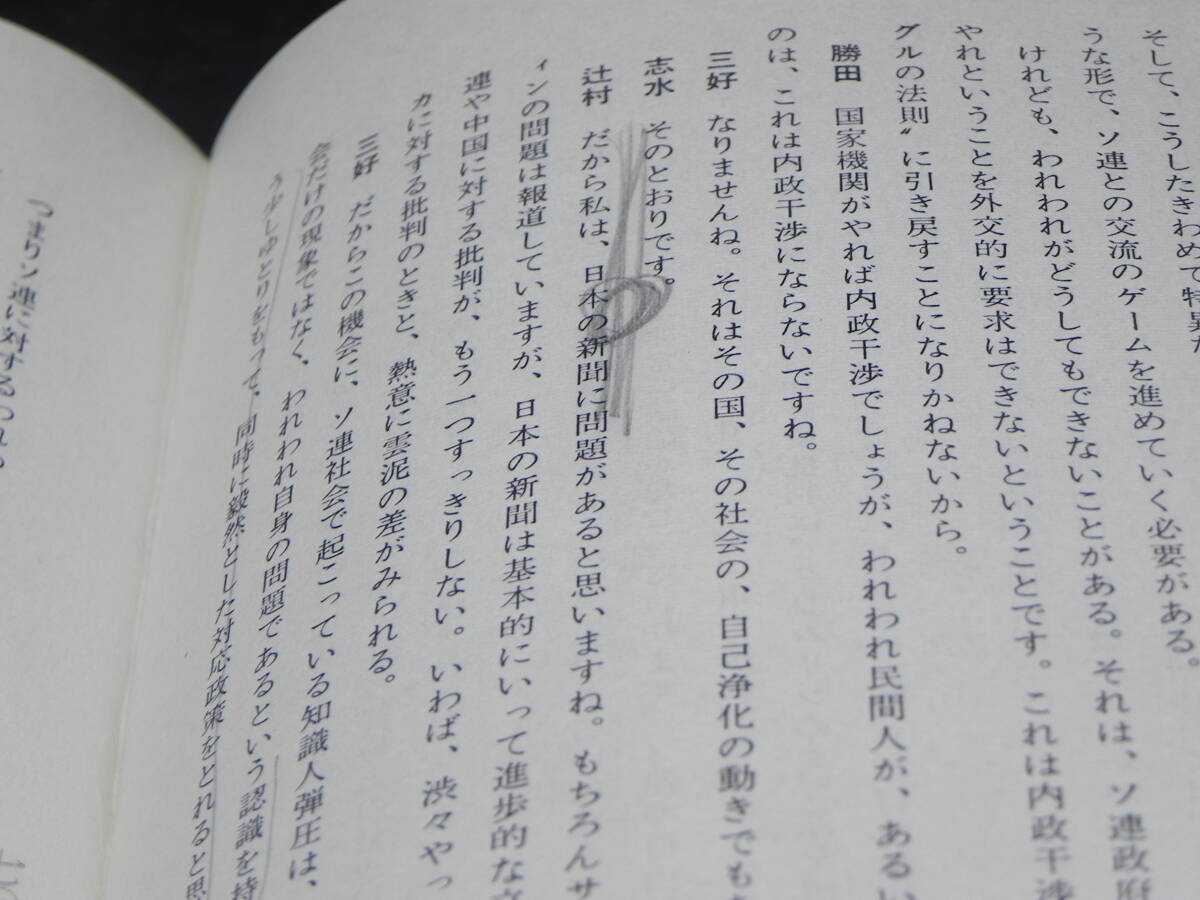 そして、こうしたきわめて特異な
うな形で、ソ連との交流のゲームを進めていく必要がある。
けれども、われわれがどうしてもできないことがある。それは、ソ連政府
やれということを外交的に要求はできないということです。これは内政干渉
グルの法則〟に引き戻すことになりかねないから。
勝田　国家機関がやれば内政干渉でしょうが、われわれ民間人が、あるい
のは、これは内政干渉にならないですね。
三好　なりませんね。それはその国、その社会の、自己浄化の動きでも
志水　そのとおりです。
辻村　だから私は、日本の新聞に問題があると思いますね。もちろんサ
ィンの問題は報道していますが、日本の新聞は基本的にいって進歩的な
連や中国に対する批判が、もう一つすっきりしない。いわば、渋々やっ
カに対する批判のときと、熱意に雲泥の差がみられる。
三好　だからこの機会に、ソ連社会で起こっている知識人弾圧は、
会だけの現象ではなく、われわれ自身の問題であるという認識を持
う少しゆとりをもって、同時に毅然とした対応政策をとれると思
つまりソ連に対するわれ